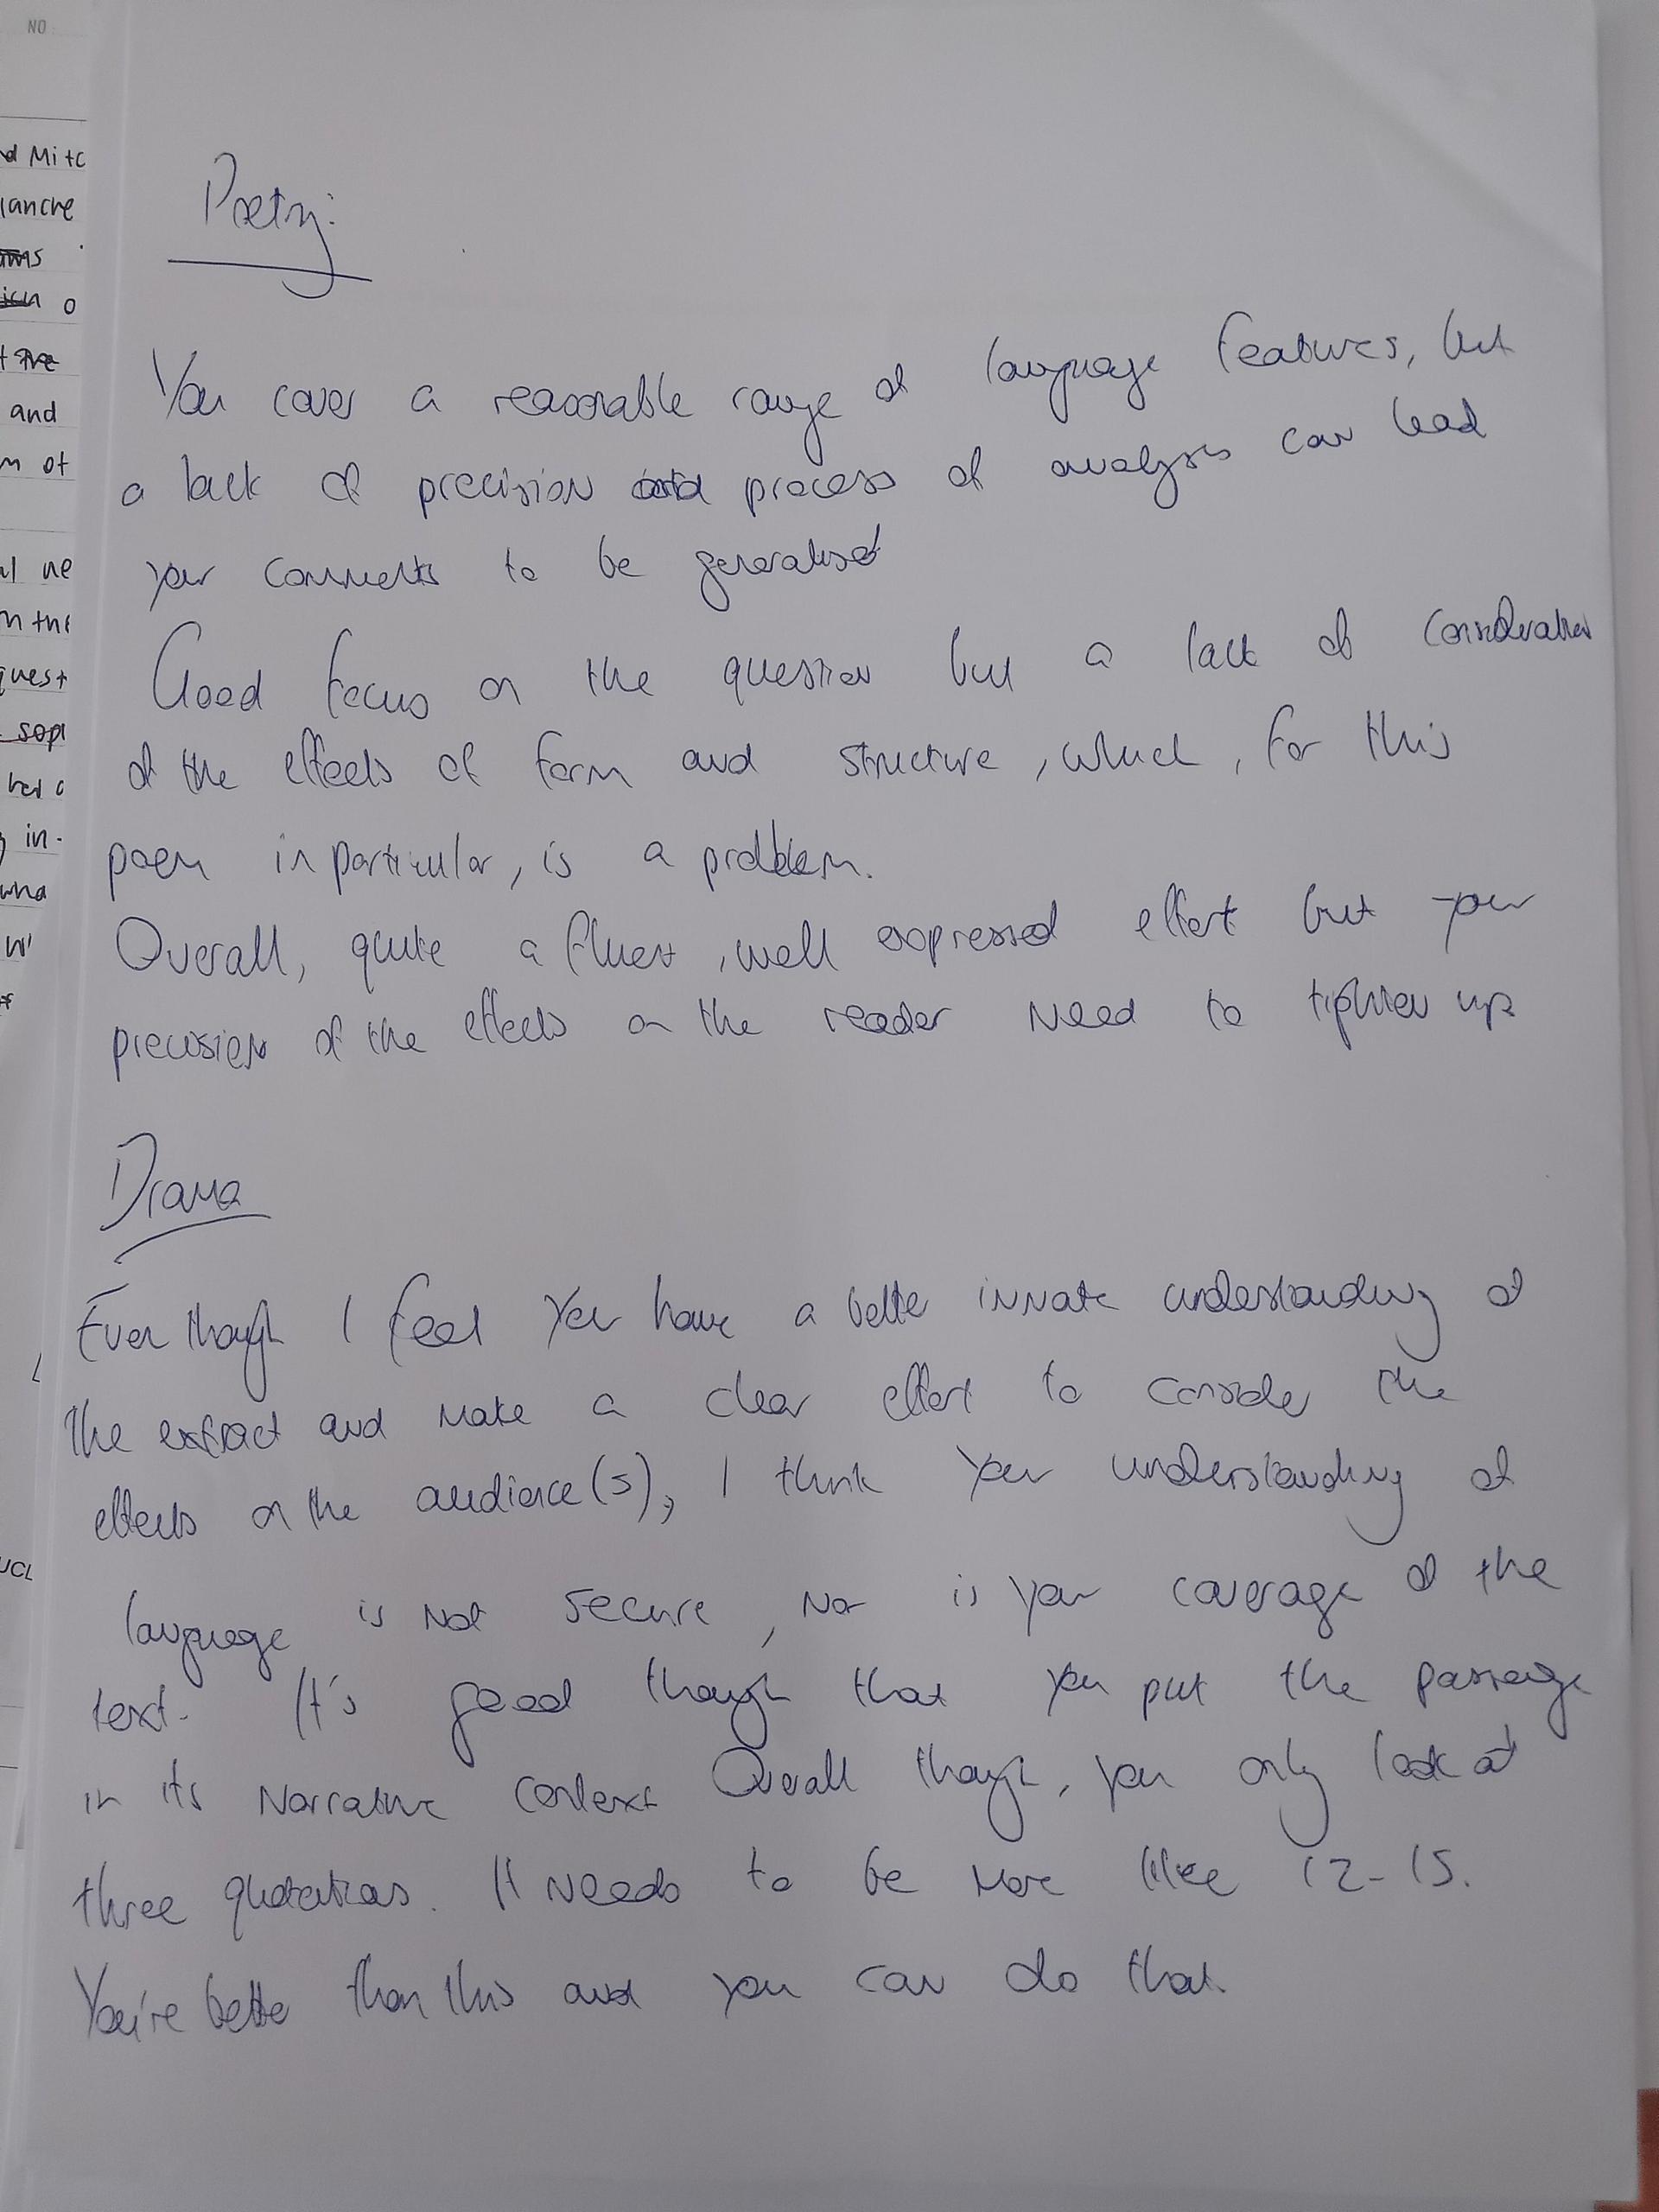 NO
Mitc
lanche
and
Poetry:
You cover a reasonable range of language features, but
a lack of precision process of analysis can lead
your comments to be generalised
Good focus on the question but a lack of consideration
of the effects of form and structure, which, for this
poem in particular, is a problem.
Overall, quite a fluent, well expressed effort but your
precision of the effects on the reader need to tighten up
Drama
Even though I feel you have a better innate understanding of
the extract and make a clear effort to consider the
effects on the audience(s), I think your understanding of
language is not secure, nor is your coverage of the
text. It's good though that you put the passage
in its narrative context Overall though, you only look at
three quotations. It needs to be more like 12-15.
You're better than this and you can do that.
UCL